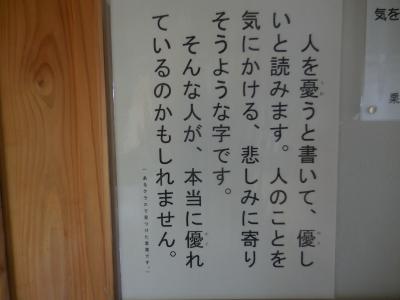 気を
乗
人を憂うと書いて、優し
いと読みます。人のことを
気にかける、悲しみに寄り
そうような字です。
そんな人が、本当に優れ
ているのかもしれません。
（あるクラスで見つけた言葉です。）